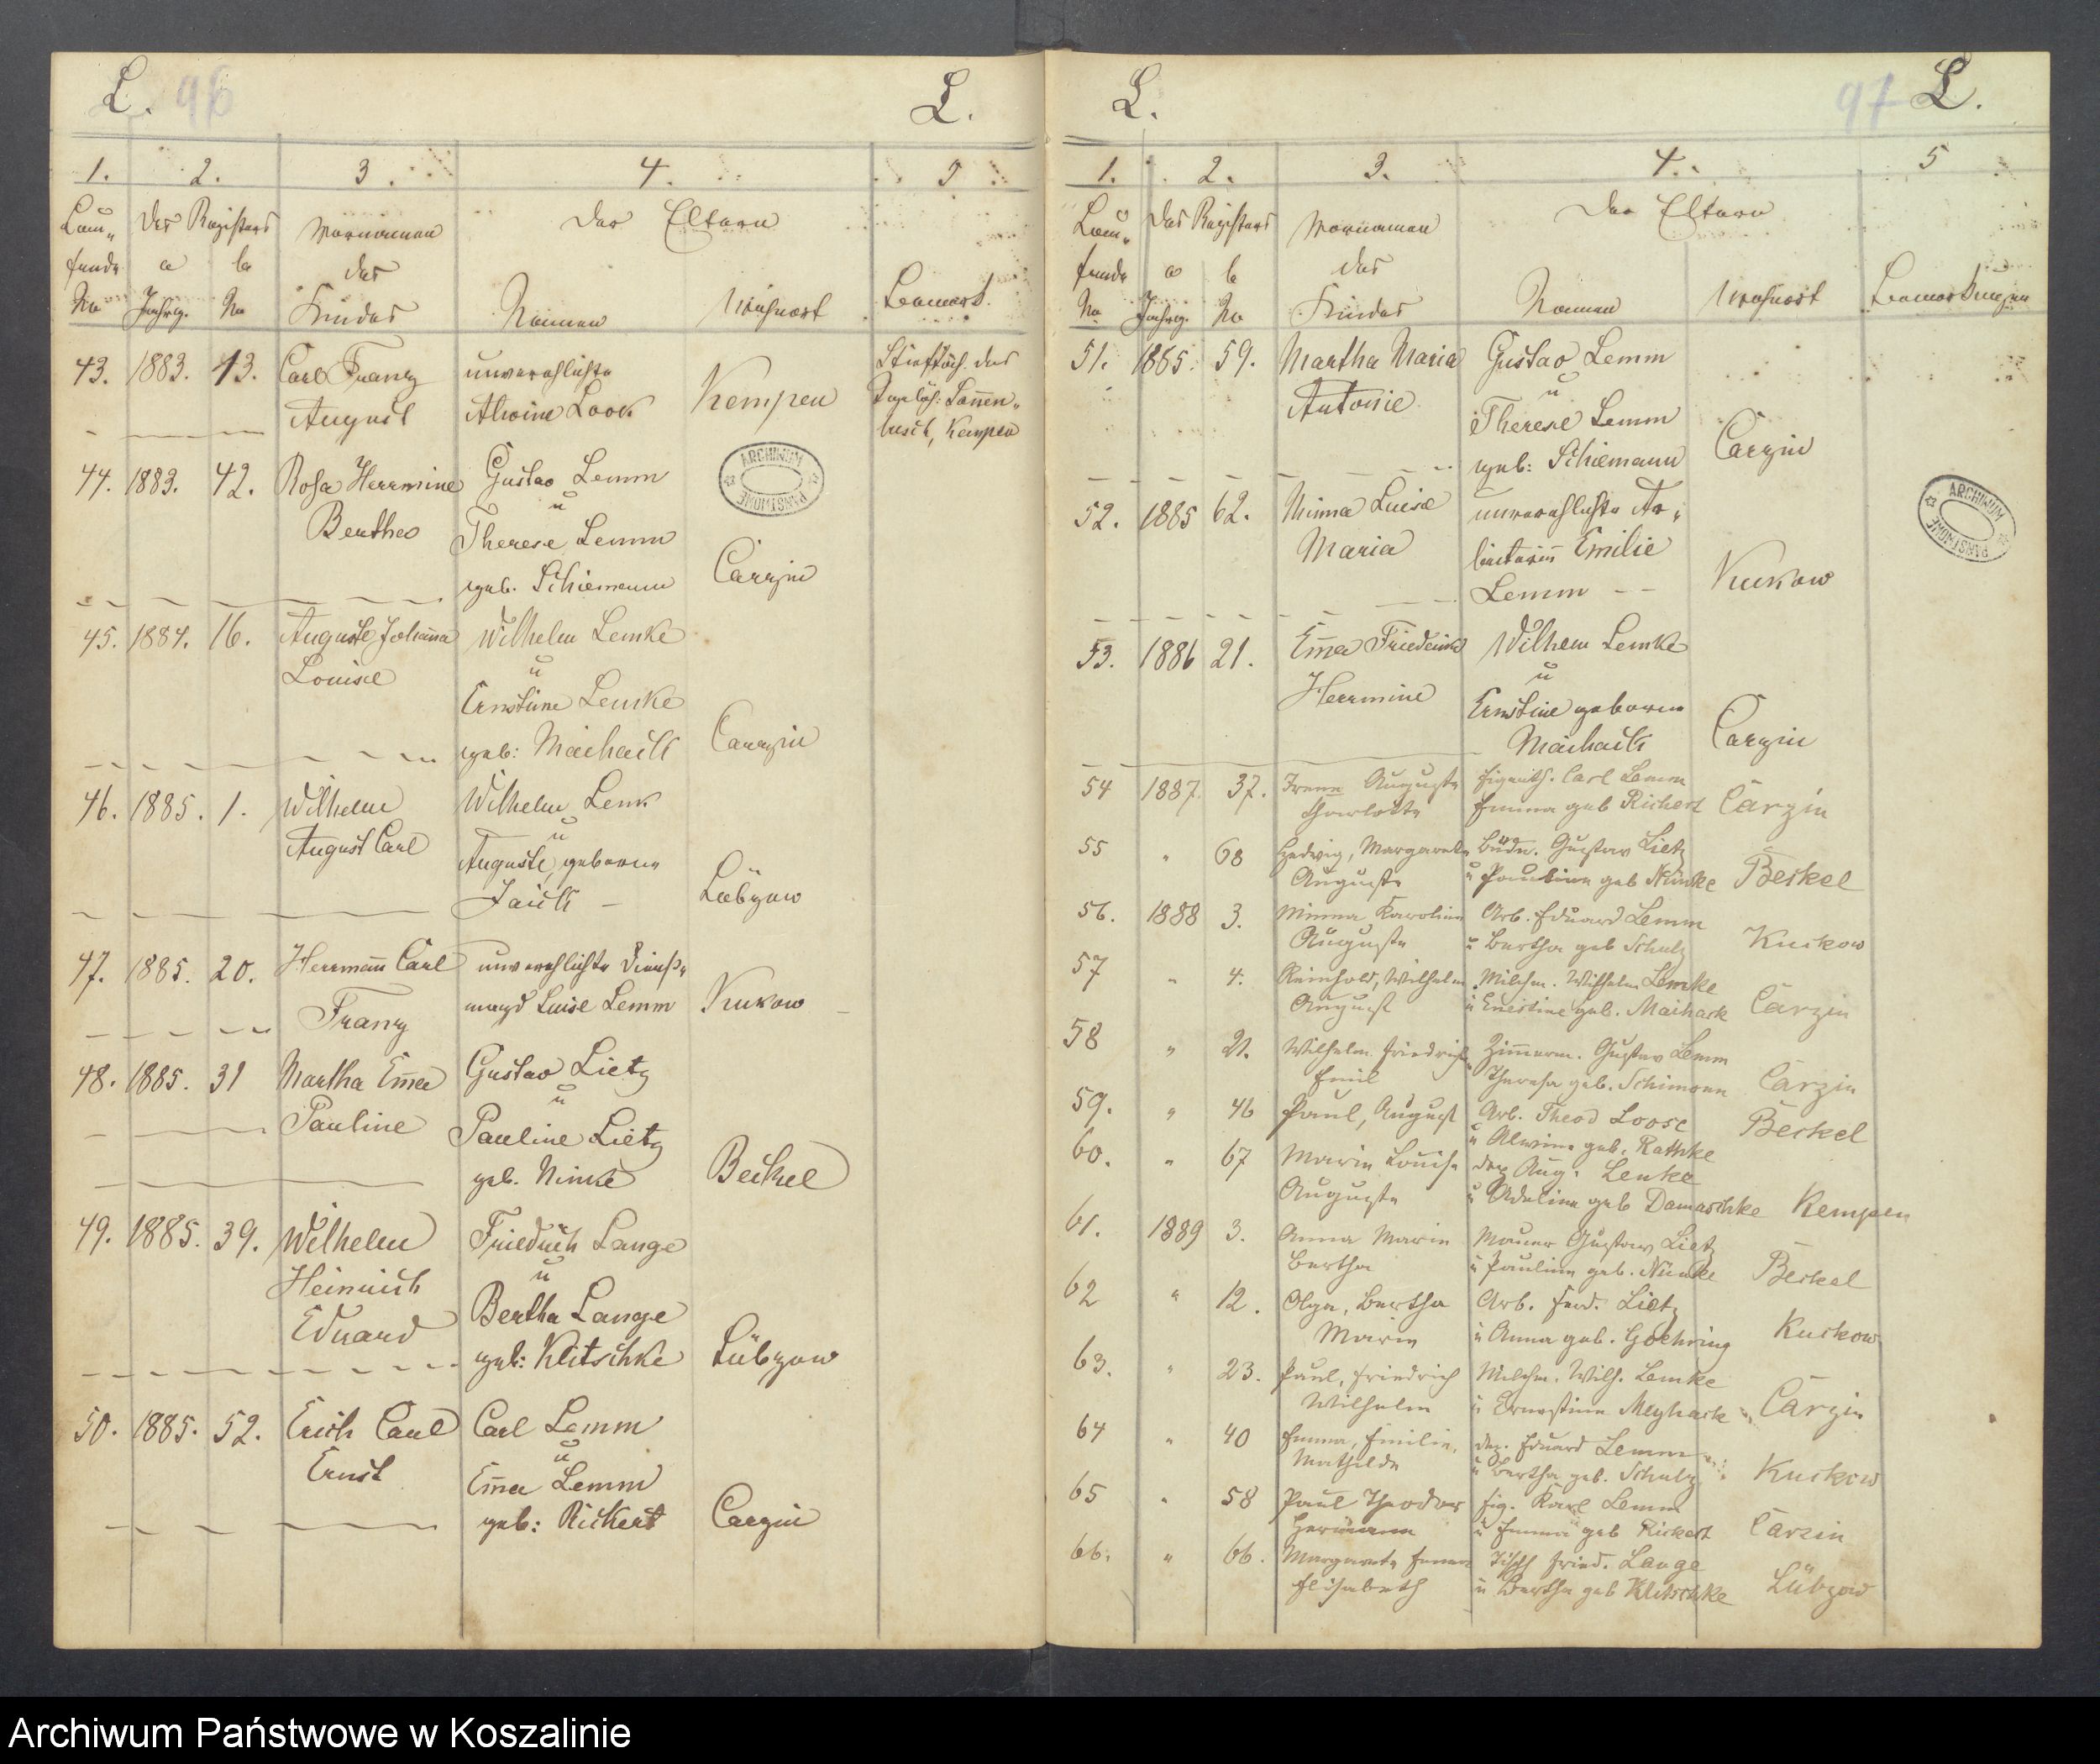 L. 96 L.
1. 2. 3. 4. 5
Lau- Des Registers Vornamen Der Eltern
fende a b des
No Jahrg. No Kindes Namen Wohnort Bemerk.
43. 1883. 13. Carl Franz unverehlichte Kempen
August Alwine Look
Kempen
44. 1883. 42. Rosa Herrmine Gustav Lemm
u
Bertha Therese Lemm
geb. Schiemann Carzin
45. 1884. 16. Auguste Johanna Wilhelm Lemke
Louise u
Ernstine Lemke
geb: Maihack Carzin
46. 1885. 1. Wilhelm Wilhelm Lenk
August Carl u
Auguste, geborne
Lübzow
47. 1885. 20. Herrmann Carl unverehlichte Dienst-
Franz magd Luise Lemm Kukow
48. 1885. 31 Martha Emma Gustav Lietz
u
Pauline Pauline Lietz
geb. Nimke Beckel
49. 1885. 39. Wilhelm Friedrich Lange
Heinrich u
Eduard Bertha Lange
geb: Klitschke Lübzow
50. 1885. 52. Erich Carl Carl Lemm
Ernst u
Emma Lemm
geb: Rickert Carzin
L. 97 L.
1. 2. 3. 4. 5
Lau- Des Registers Vornamen Der Eltern
fende a b des
No Jahrg. No Kindes Namen Wohnort Bemerkungen
51. 1885. 59. Martha Maria Gustav Lemm
u
Antonie Therese Lemm
geb: Schiemann Carzin
52. 1885 62. Minna Luise unverehlichte Ar-
Maria beiterin Emilie
Lemm Kukow
53. 1886 21. Emma Friederike Wilhem Lemke
u
Herrmine Ernstine geborne
Maihack Carzin
54 1887. 37. Irene Auguste Eigenth. Carl Lemm
Charlotte Emma geb Rickert Carzin
55 " 68 Hedwig, Margarethe Büdn. Gustav Lietz
Auguste u Pauline geb Nimke Beckel
56. 1888 3. Minna Karoline Arb. Eduard Lemm
Auguste u Bertha geb Schulz Kuckow
57 " 4. Reinhold, Wilhelm Milchm. Wilhelm Lemke
August u Ernestine geb. Maihack Carzin
58 " 21. Wilhelm Friedrich Zimmerm. Gustav Lemm
Emil Therese geb. Schimann Carzin
59. " 46 Paul, August Arb. Theod Loose Beckel
u Alwine geb. Rathke
60. " 67 Marie Louise Aug. Lenke
Auguste u Adeline geb Damaschke Kempen
61. 1889 3. Anna Marie Maurer Gustav Lietz
Bertha u Pauline geb. Nimke Beckel
62 " 12. Olga, Bertha Arb. Ferd. Lietz
Marie u Anna geb. Goehring Kuckow
63. " 23. Paul, Friedrich Milchm. Wilh. Lemke
Wilhelm u Ernestine Meyhack Carzin
64 " 40 Emma, Emilie, Eduard Lemm
Mathilde u Bertha geb. Schulz Kuckow
65 " 58 Paul Theodor Eig. Karl Lemm
Hermann u Emma geb Rickert Carzin
66. " 66. Margarete Emma Tischl Fried. Lange
Elisabeth u Bertha geb Klitschke Lübzow
ARCHIWUM PAŃSTWOWE
ARCHIWUM PAŃSTWOWE
Archiwum Państwowe w Koszalinie